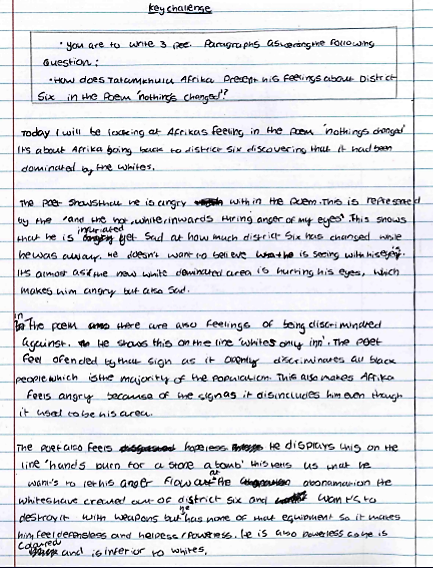 Key challenge
• you are to write 3 pee. Paragraphs answering the following
question:
• How does Tatamkhulu Afrika Present his feelings about District
Six in the Poem 'nothings changed'?
Today I will be looking at Afrikas feeling in the poem 'nothings changed'
Its about Afrika going back to district six discovering that it had been
dominated by the whites.
The poet shows that he is angry within the poem. This is represented
by the 'and the hot, white, inwards turning anger of my eyes'. This shows
that he is infuriated yet sad at how much district Six has changed while
he was away. He doesn't want to believe what he is seeing with his eyes.
Its almost as if the new white dominated area is hurting his eyes, which
makes him angry but also sad.
in The poem there are also feelings of being discriminated
Against. He shows this on the line 'whites only inn'. The poet
feel ofended by that sign as it openly discriminates all black
people which is the majority of the population. This also makes Afrika
feels angry because of the sign as it disincludes him even though
it used to be his area.
The poet also feels hopeless He displays this on the
line 'hands burn for a stone a bomb' this tells us that he
wants to let his anger flow at the abomanation the
whites have created out of district six and wants to
destroy it with weapons but he has none of that equipment so it makes
him feel defensless and helpess/powerless. He is also powerless as he is
coloured and is inferior to whites.